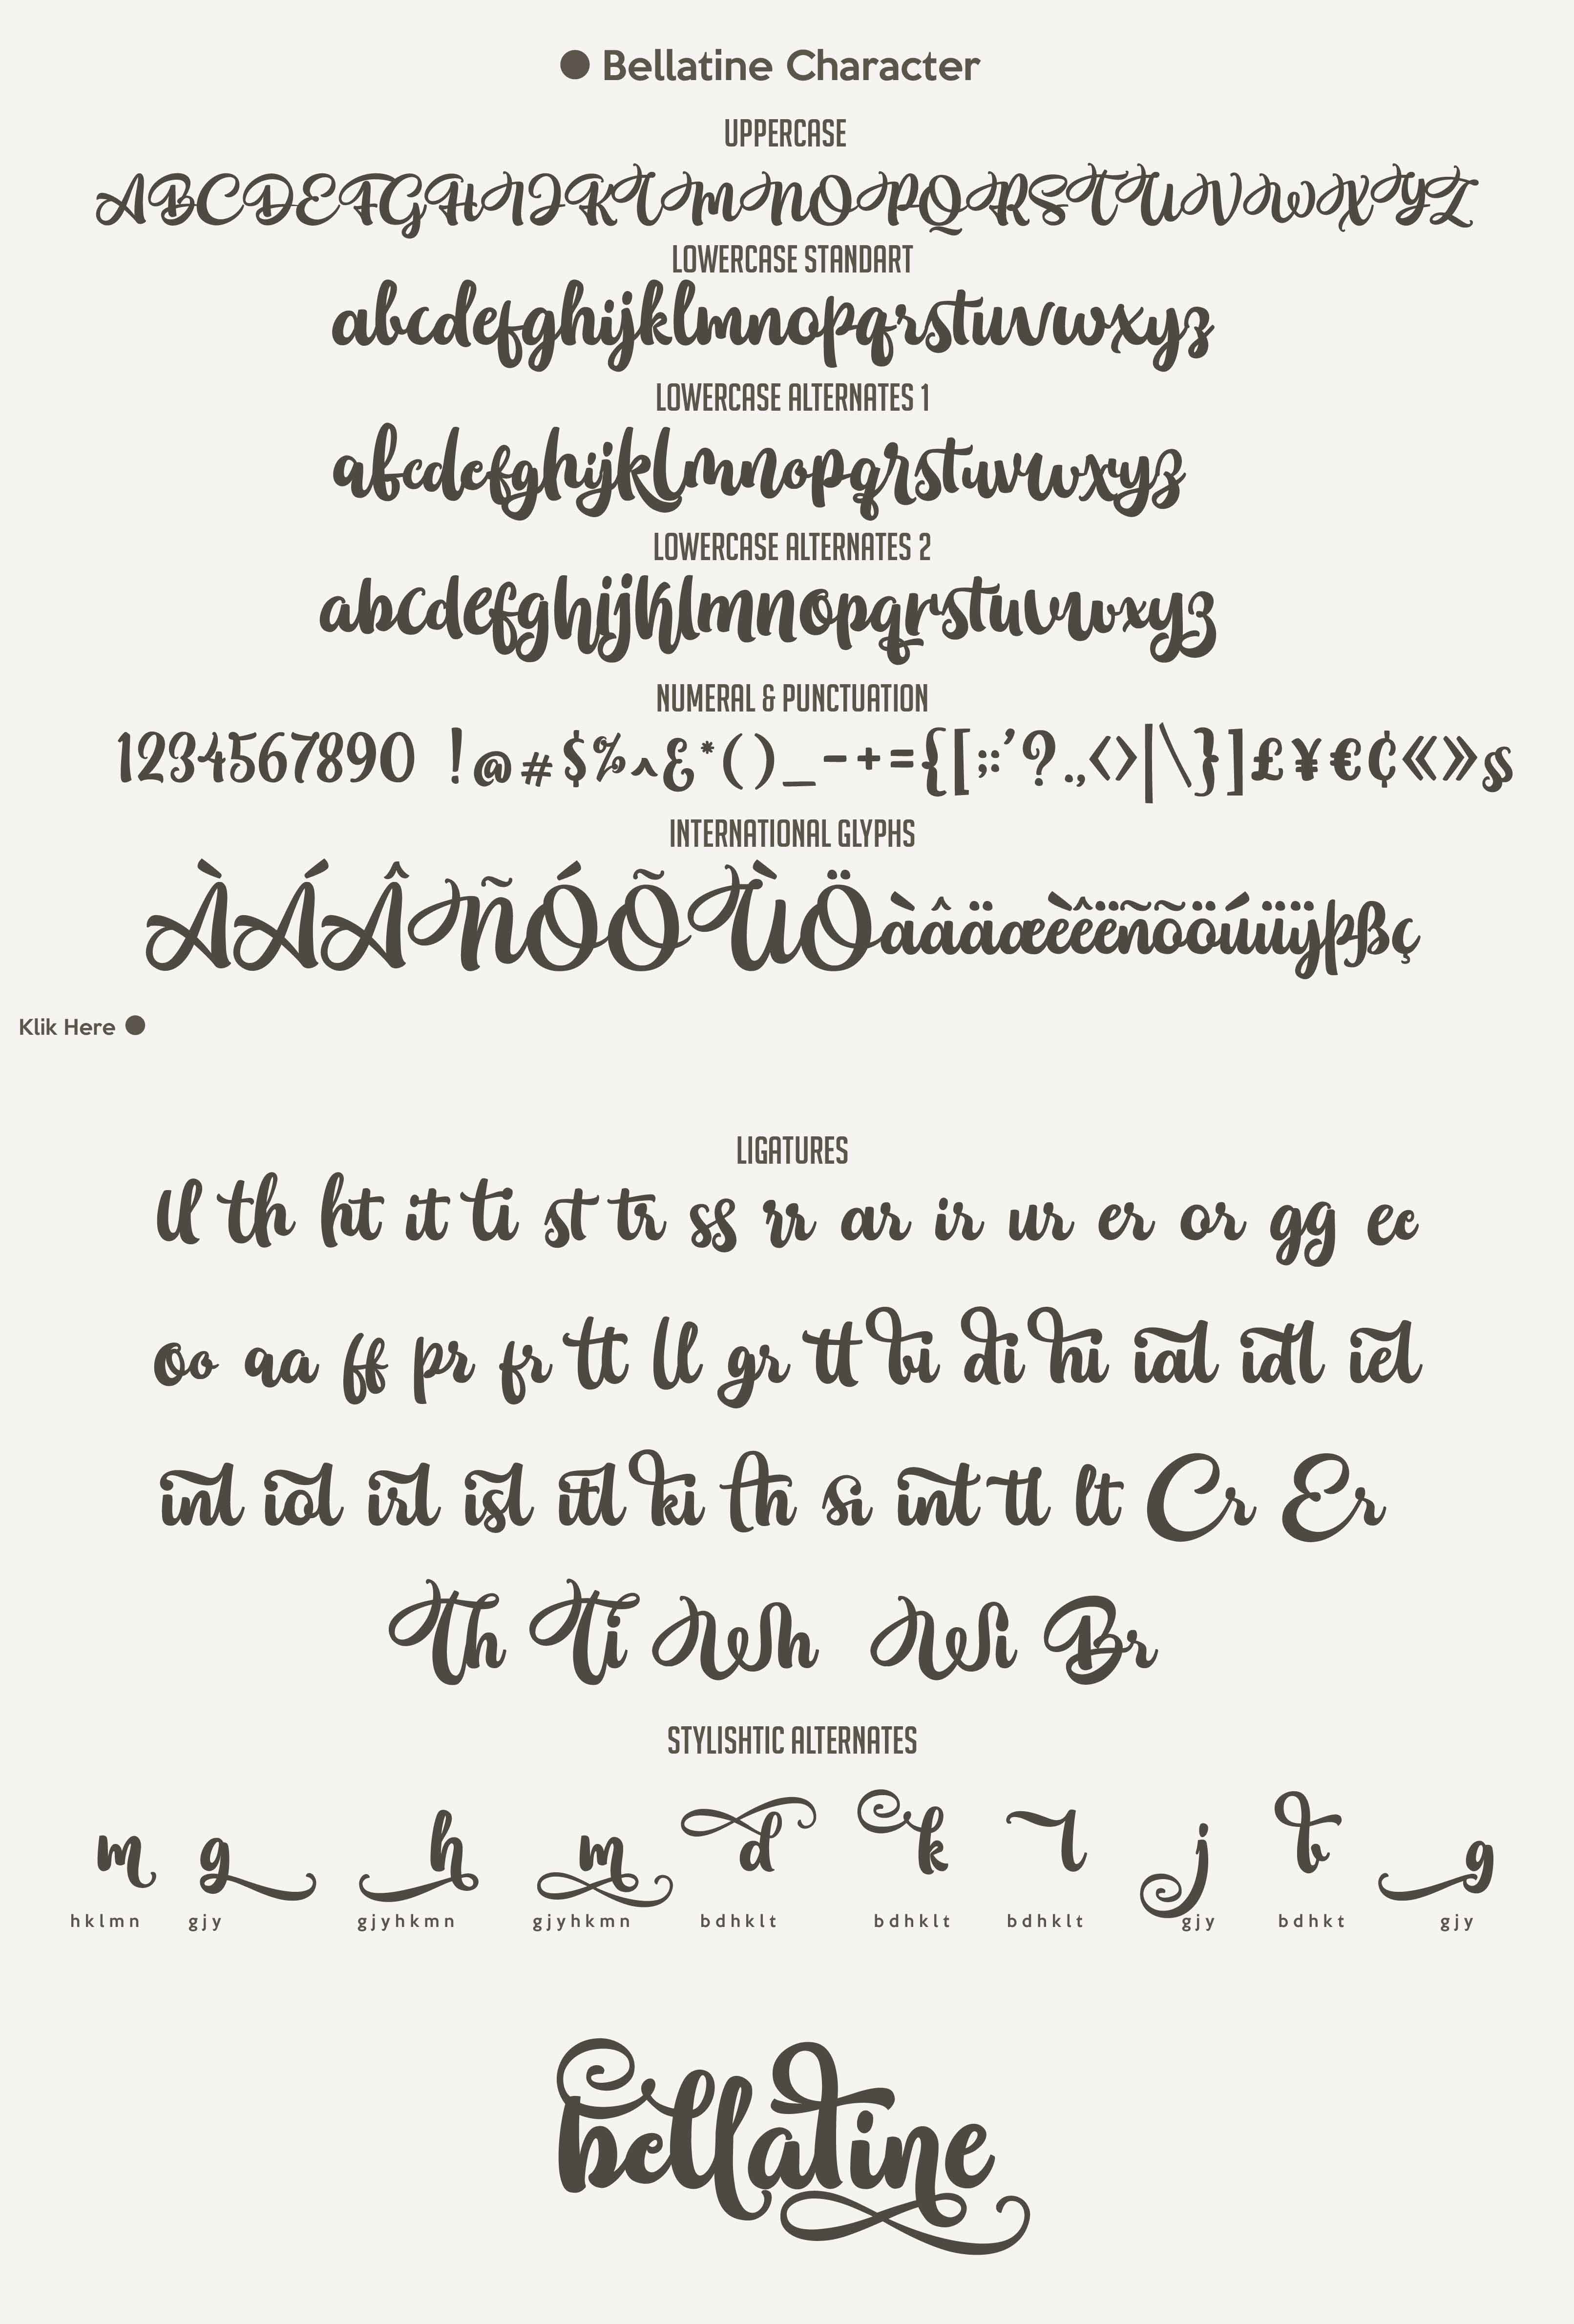 Bellatine Character
UPPERCASE
ABCDEFGHIJKLMNOPQRSTUVWXYZ
LOWERCASE STANDART
abcdefghijklmnopqrstuvwxyz
LOWERCASE ALTERNATES 1
abcdefghijklmnopqrstuvwxyz
LOWERCASE ALTERNATES 2
abcdefghijklmnopqrstuvwxyz
NUMERAL & PUNCTUATION
1234567890 !@#$%^&*()_-+={[;:'?.,<>|\}]£¥€¢«»
INTERNATIONAL GLYPHS
ÀÁÂÑÓÕÙÖàâäæèêëñõöúüÿþßç
Klik Here
LIGATURES
ll th ht it ti st tr ss rr ar ir ur er or gg ee
oo aa ff pr fr tt ll gr tt bi di hi ial idl iel
inl iol irl isl itl ki th si int tl lt Cr Er
Th Ti Wh Wi Br
STYLISHTIC ALTERNATES
m g h m d k l j b g
hklmn gjy gjyhkmn gjyhkmn bdhklt bdhklt bdhklt gjy bdhkt gjy
bellatine